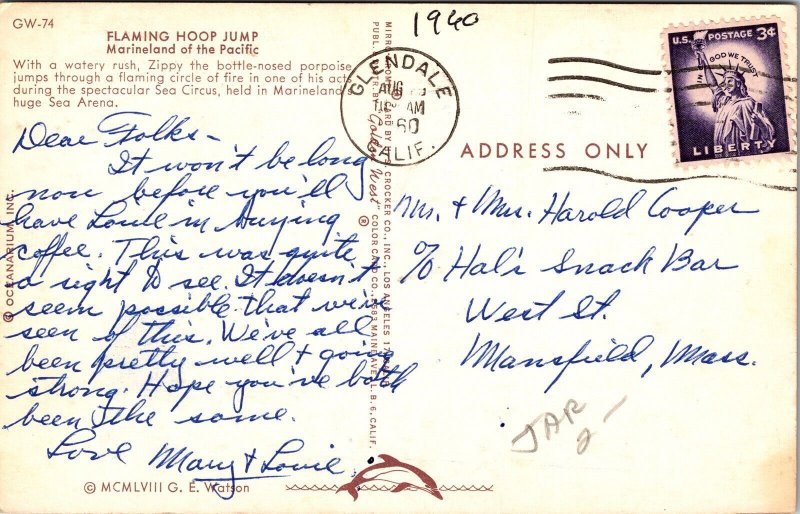 GW-74
FLAMING HOOP JUMP
Marineland of the Pacific
With a watery rush, Zippy the bottle-nosed porpoise
jumps through a flaming circle of fire in one of his acts
during the spectacular Sea Circus, held in Marineland
huge Sea Arena.
Dear Folks –
It won't be long
now before you'll
have Louie in buying
coffee. This was quite
a sight to see. It doesn't
seem possible that we've
seen of this. We've all
been pretty well + going
strong. Hope you've both
been the same.
Love Mary + Louie
© MCMLVIII G. E. Watson
© OCEANARIUM, INC.
"Golden West"
® COLOR CARD CO.
CROCKER CO., INC., LOS ANGELES
L. B. 6, CALIF.
1960
GLENDALE
AUG
AM
60
CALIF.
U.S. POSTAGE 3¢
IN GOD WE TRUST
LIBERTY
ADDRESS ONLY
Mr. + Mrs. Harold Cooper
c/o Hal's Snack Bar
West St.
Mansfield, Mass.
JAR
2 –